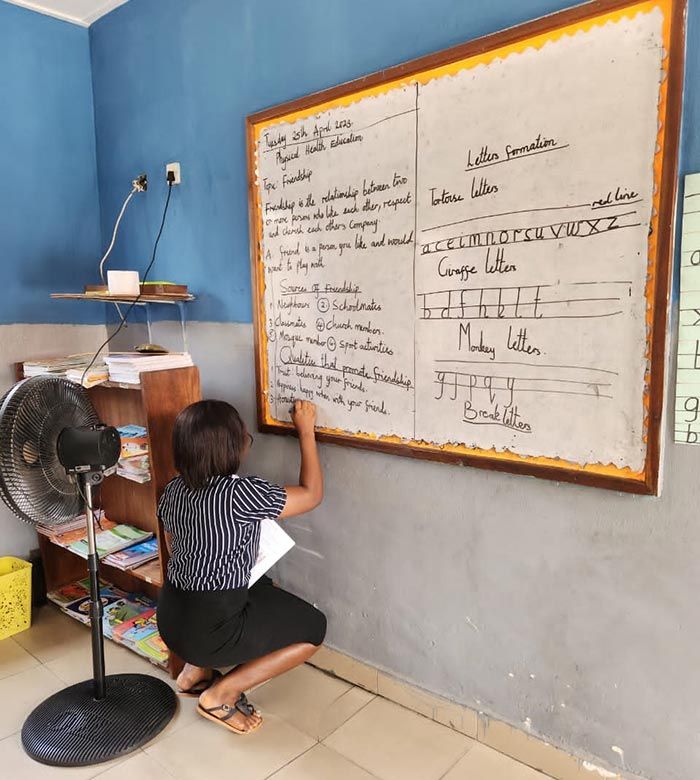 Tuesday 25th April 2023.
Physical Health Education
Topic: Friendship
Friendship is the relationship between two
or more persons who like each other, respect
and cherish each other's company.
A friend is a person you like and would
want to play with
Sources of Friendship
1 Neighbours ② Schoolmates
3 Classmates ④ Church members.
⑤ Mosque member ⑥ Sport activities
Qualities that promote friendship
1 Trust: believing your friends.
2 happy when with your friends.
③
Letters formation
Tortoise letters
red line
a c e i m n o r s u v w x z
Giraffe letters
b d f h k l t
Monkey letters.
g j p q y
Break letters